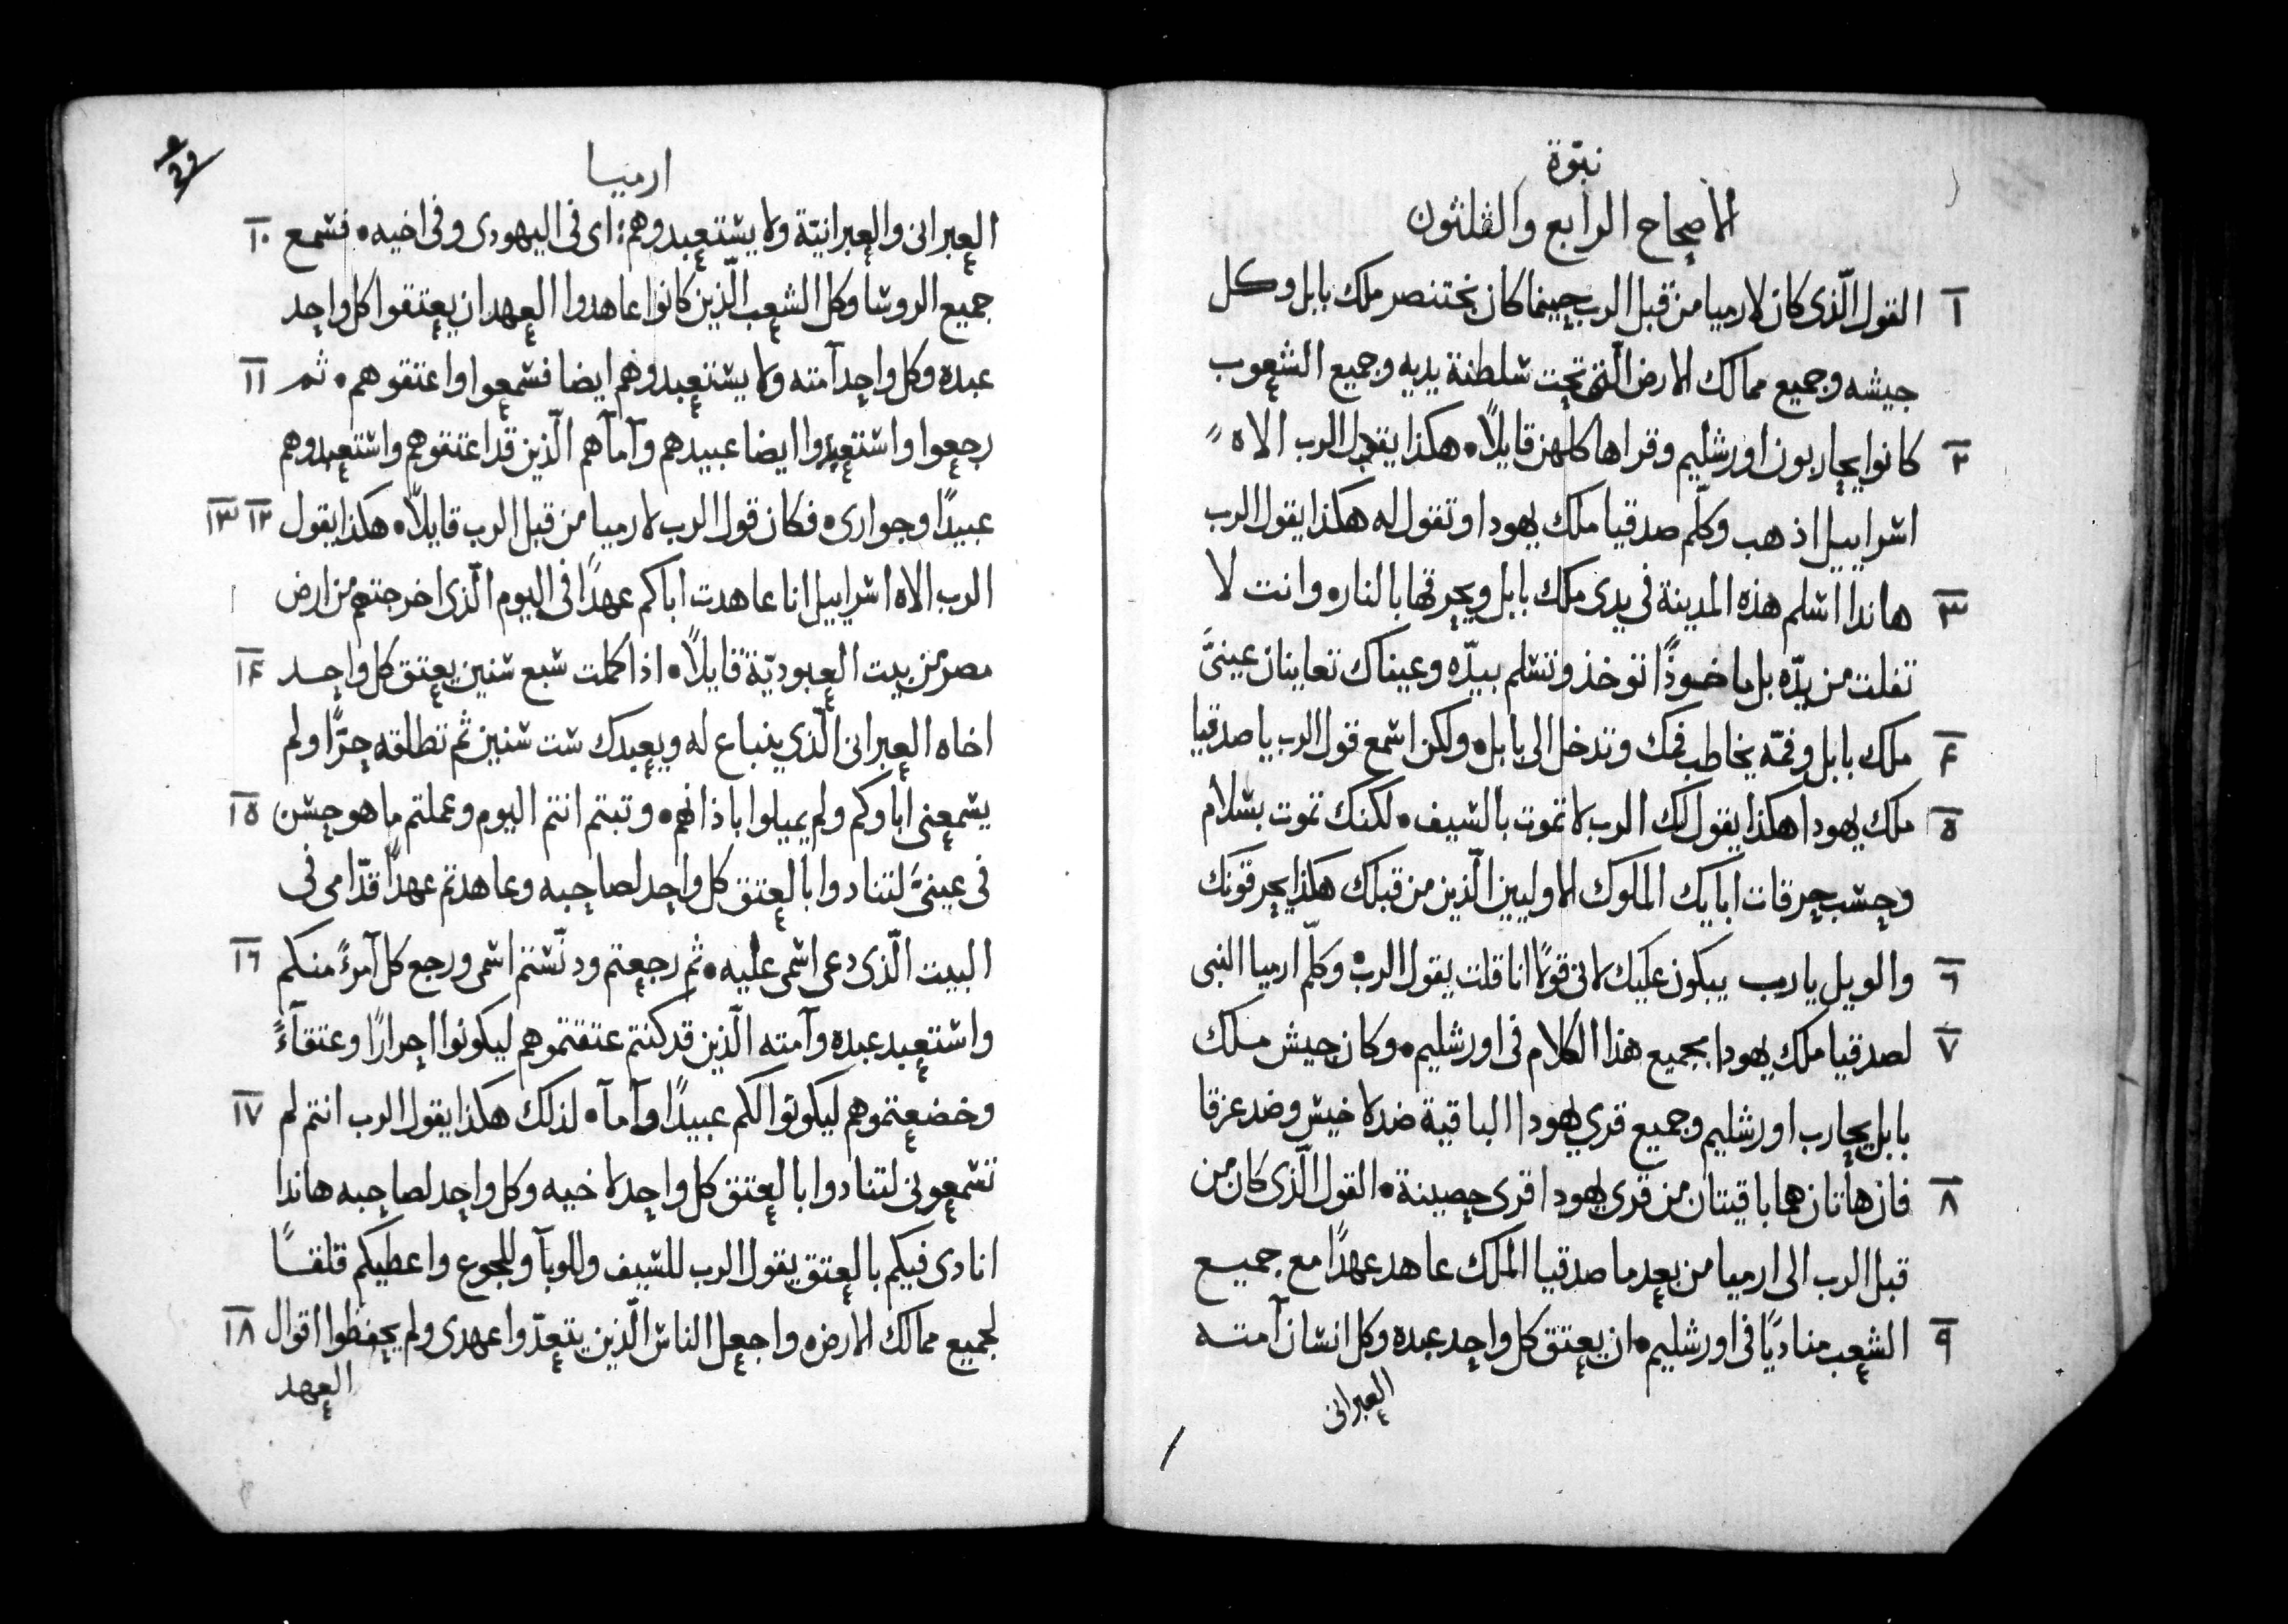 نبوّة
الاصحاح الرابع والثلثون
١ القول الّذى كان لارميا من قبل الرب حينما كان بختنصر ملك بابل وكل
جيشه وجميع ممالك الارض الّتى تحت سلطنة يديه وجميع الشعوب
٢ كانوا يحاربون اورشليم وقراها كلهن قايلاً • هكذا يقول الرب الاه
اسراييل اذهب وكلّم صدقيا ملك يهودا وتقول له هكذا يقول الرب
٣ هانذا اسلم هذه المدينة فى يدى ملك بابل ويحرقها بالنار • وانت لا
تفلت من يدّه بل ماخوذًا توخذ وتسلم بيدّه وعيناك تعاينان عينىَّ
٤ ملك بابل وفمّه يخاطب فمك وتدخل الى بابل • ولكن اسمع قول الرب يا صدقيا
٥ ملك يهودا هكذا يقول لك الرب لا تموت بالسيف • لكنك تموت بسلام
وحسب حرقات ابايك الملوك الاوليين الّذين من قبلك هكذا يحرقونك
٦ والويل يا رب يبكون عليك لانى قولًا انا قلت يقول الرب • وكلّم ارميا النبى
٧ لصدقيا ملك يهودا بجميع هذا الكلام فى اورشليم • وكان جيش ملك
بابل يحارب اورشليم وجميع قرى يهودا الباقية ضد لاخيش وضد عزقا
٨ فان هاتان هما باقيتان من قرى يهودا قرى حصينة • القول الّذى كان من
قبل الرب الى ارميا من بعد ما صدقيا الملك عاهد عهدًا مع جميع
٩ الشعب مناديًا فى اورشليم • ان يعتق كل واحد عبده وكل انسان آمته
العبرانى
ارميا
العبرانى والعبرانيّة ولا يستعبدوهم : اى فى اليهودى وفى اخيه • فسمع ١٠
جميع الروسا وكل الشعب الّذين كانوا عاهدوا العهد ان يعتقوا كل واحد
عبده وكل واحد آمته ولا يستعبدوهم ايضا فسمعوا واعتقوهم • ثم ١١
رجعوا واستعبدوا ايضا عبيدهم وآمآهم الّذين قد اعتقوهم واستعبدوهم
عبيدًا وجوارى • فكان قول الرب لارميا من قبل الرب قايلاً • هكذا يقول ١٢ ١٣
الرب الاه اسراييل انا عاهدت اباكم عهدًا فى اليوم الّذى اخرجتهم من ارض
مصر من بيت العبوديّة قايلاً • اذا كملت سبع سنين يعتق كل واحد ١٤
اخاه العبرانى الّذى ينباع له ويعبدك ست سنين ثم تطلقه حرًّا ولم
يسمعنى اباوكم ولم يميلوا باذانهم • وتبتم انتم اليوم وعملتم ما هو حسن ١٥
فى عينىَّ لتنادوا بالعتق كل واحد لصاحبه وعاهدتم عهدًا قدّامى فى
البيت الّذى دعى اسمى عليه • ثم رجعتم ودنّستم اسمى ورجع كل آمرءً منكم ١٦
واستعبد عبده وآمته الّذين قد كنتم عتقتموهم ليكونوا احرارًا وعتقآءً
وخضعتموهم ليكونوا لكم عبيدًا وآمآ • لذلك هكذا يقول الرب انتم لم ١٧
تسمعونى لتنادوا بالعتق كل واحد لاخيه وكل واحد لصاحبه هانذا
انادى فيكم بالعتق يقول الرب للسيف وللوبآ وللجوع واعطيكم قلقًا
لجميع ممالك الارض • واجعل الناس الّذين يتعدّوا عهدى ولم يحفظوا اقوال ١٨
العهد